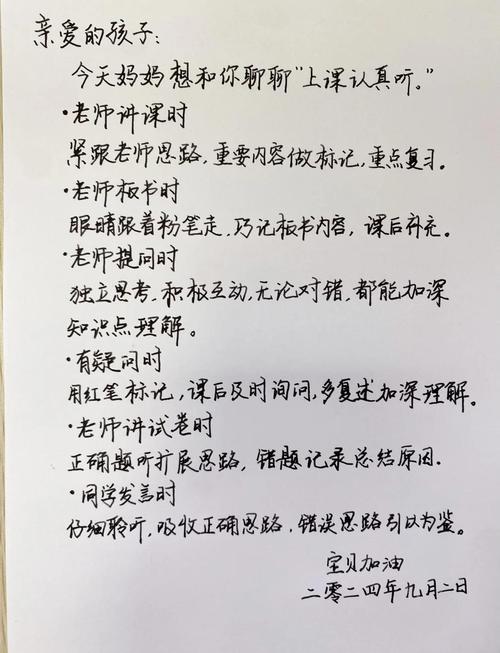 亲爱的孩子:
今天妈妈想和你聊聊“上课认真听。”
·老师讲课时
紧跟老师思路,重要内容做标记,重点复习。
·老师板书时
眼睛跟着粉笔走,巧记板书内容,课后补充。
·老师提问时
独立思考,积极互动,无论对错,都能加深
知识点理解。
·有疑问时
用红笔标记,课后及时询问,多复述加深理解。
·老师讲试卷时
正确题听扩展思路,错题记录总结原因.
·同学发言时
仔细聆听,吸收正确思路,错误思路引以为鉴。
宝贝加油
二零二四年九月二日